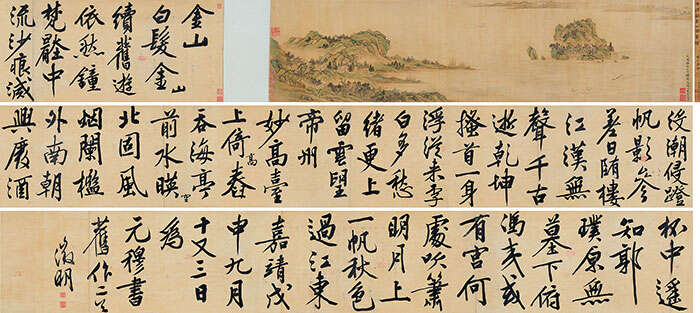 金山
白髮金山
續舊遊
依然鐘
梵壓中
流沙痕滅
沒潮侵蹬
帆影參
差日隨樓
江漢無
聲千古
逝乾坤
搔首一身
浮從來李
白多愁
緒更上
留雲望
帝州
妙高臺
上倚高舂
吞海亭
前水暎空
北固風
烟闌檻
外南朝
興廢酒
杯中遙
知郭
璞原無
墓下俯
馮夷或
有宮何
處吹簫
明月上
一帆秋色
過江東
嘉靖戊
申九月
十又三日
為
元穆書
舊作二首
徵明